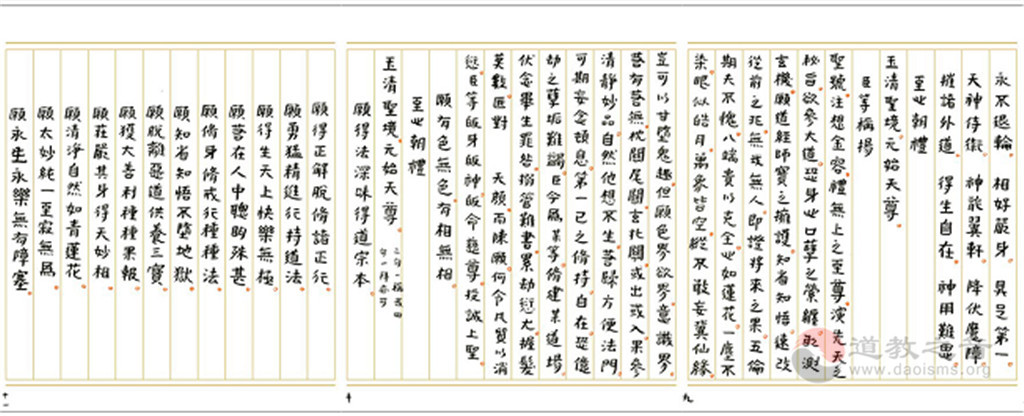 永不退輪　相好嚴身　具足第一
天神侍衛　神龍翼軒　降伏魔障
摧諸外道　得生自在　神用難思
至心朝禮
玉清聖境元始天尊
臣等稱揚
聖號注想金容禮無上之至尊演先天之
秘旨欲參大道恐身心口孽之縈纏
玄機願道經師寶之擁護知者知悟速改
從前之非無我無人即證將來之果五倫
期夫不愧八端貴以克全心如蓮花一塵不
染眼似皓月萬象皆空縱不敢妄冀仙緣
豈可以甘墮鬼趣但願色界欲界意識界
清靜妙品自然他想不生菩歸方便法門
可期妄念頓息第一己之修持自在恐億
劫之孽垢難蠲臣今為某等修建某道場
伏念畢生罪咎擢管難書累劫愆尤擢髮
莫數匪對　天顏而陳願何令凡質以消
愆臣等皈身皈神皈命慈尊投誠上聖
願有色無色有相無相
至心朝禮
玉清聖境元始天尊
願得法深味得道宗本
願得正解脫修諸正行
願勇猛精進行持道法
願得生天上快樂無極
願菩在人中聰明殊甚
願脩身修戒行種種法
願知省知悟不墮地獄
願脫離惡道供養三寶
願獲大善利種種果報
願莊嚴其身得天妙相
願清淨自然如青蓮花
願太妙純一至寂無為
願永生永樂無有障塞
九
十
十一
道教之音
www.daoisms.org